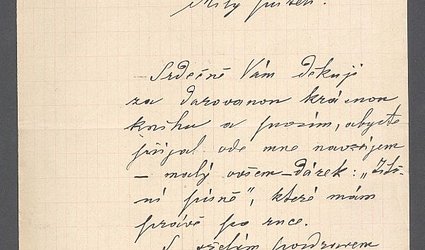 Milý příteli.
Srdečně Vám děkuji
za darovanou krásnou
knihu a prosím, abyste
přijal ode mne navzájem
– malý ovšem – dárek: „Žit-
ní písně", které mám
právě po ruce.
S vřelým pozdravem